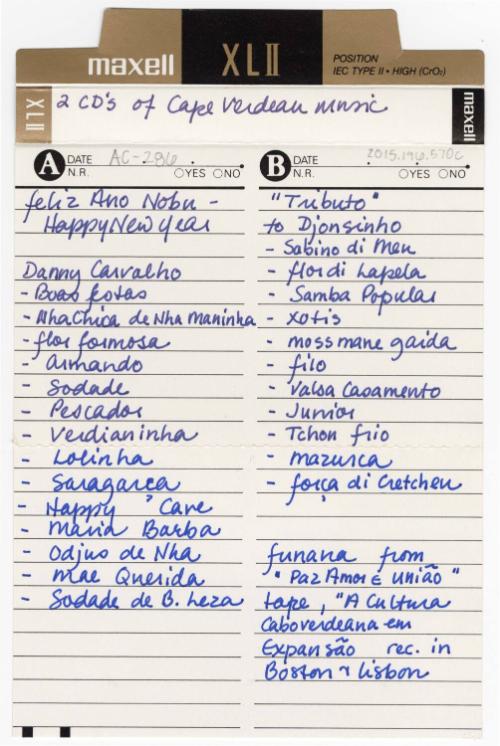 maxell XLII POSITION
IEC TYPE II • HIGH (CrO2)
XLII 2 CD's of Cape Verdean music maxell
A DATE AC-286
N.R. YES NO
feliz Ano Nobu -
Happy New Year
Danny Carvalho
- Boas festas
- NhaChica de Nha Maninha
- flor formosa
- Armando
- Sodade
- Pescador
- Verdianinha
- Lolinha
- Saragarça
- Happy ? Cave
- Maria Barba
- Odjus de Nha
- Mae Querida
- Sodade de B. Leza
B DATE 2015.196.570c
N.R. YES NO
"Tributo"
to Djonsinho
- Sabino di Meu
- flor di Lapela
- Samba Popular
- xotis
- moss mane gaida
- filo
- Valsa Casamento
- Junior
- Tchon frio
- mazurca
- força di Cretcheu
funana from
"Paz Amor E união"
tape, "A Cultura
Caboverdeana em
Expansão rec. in
Boston & Lisbon